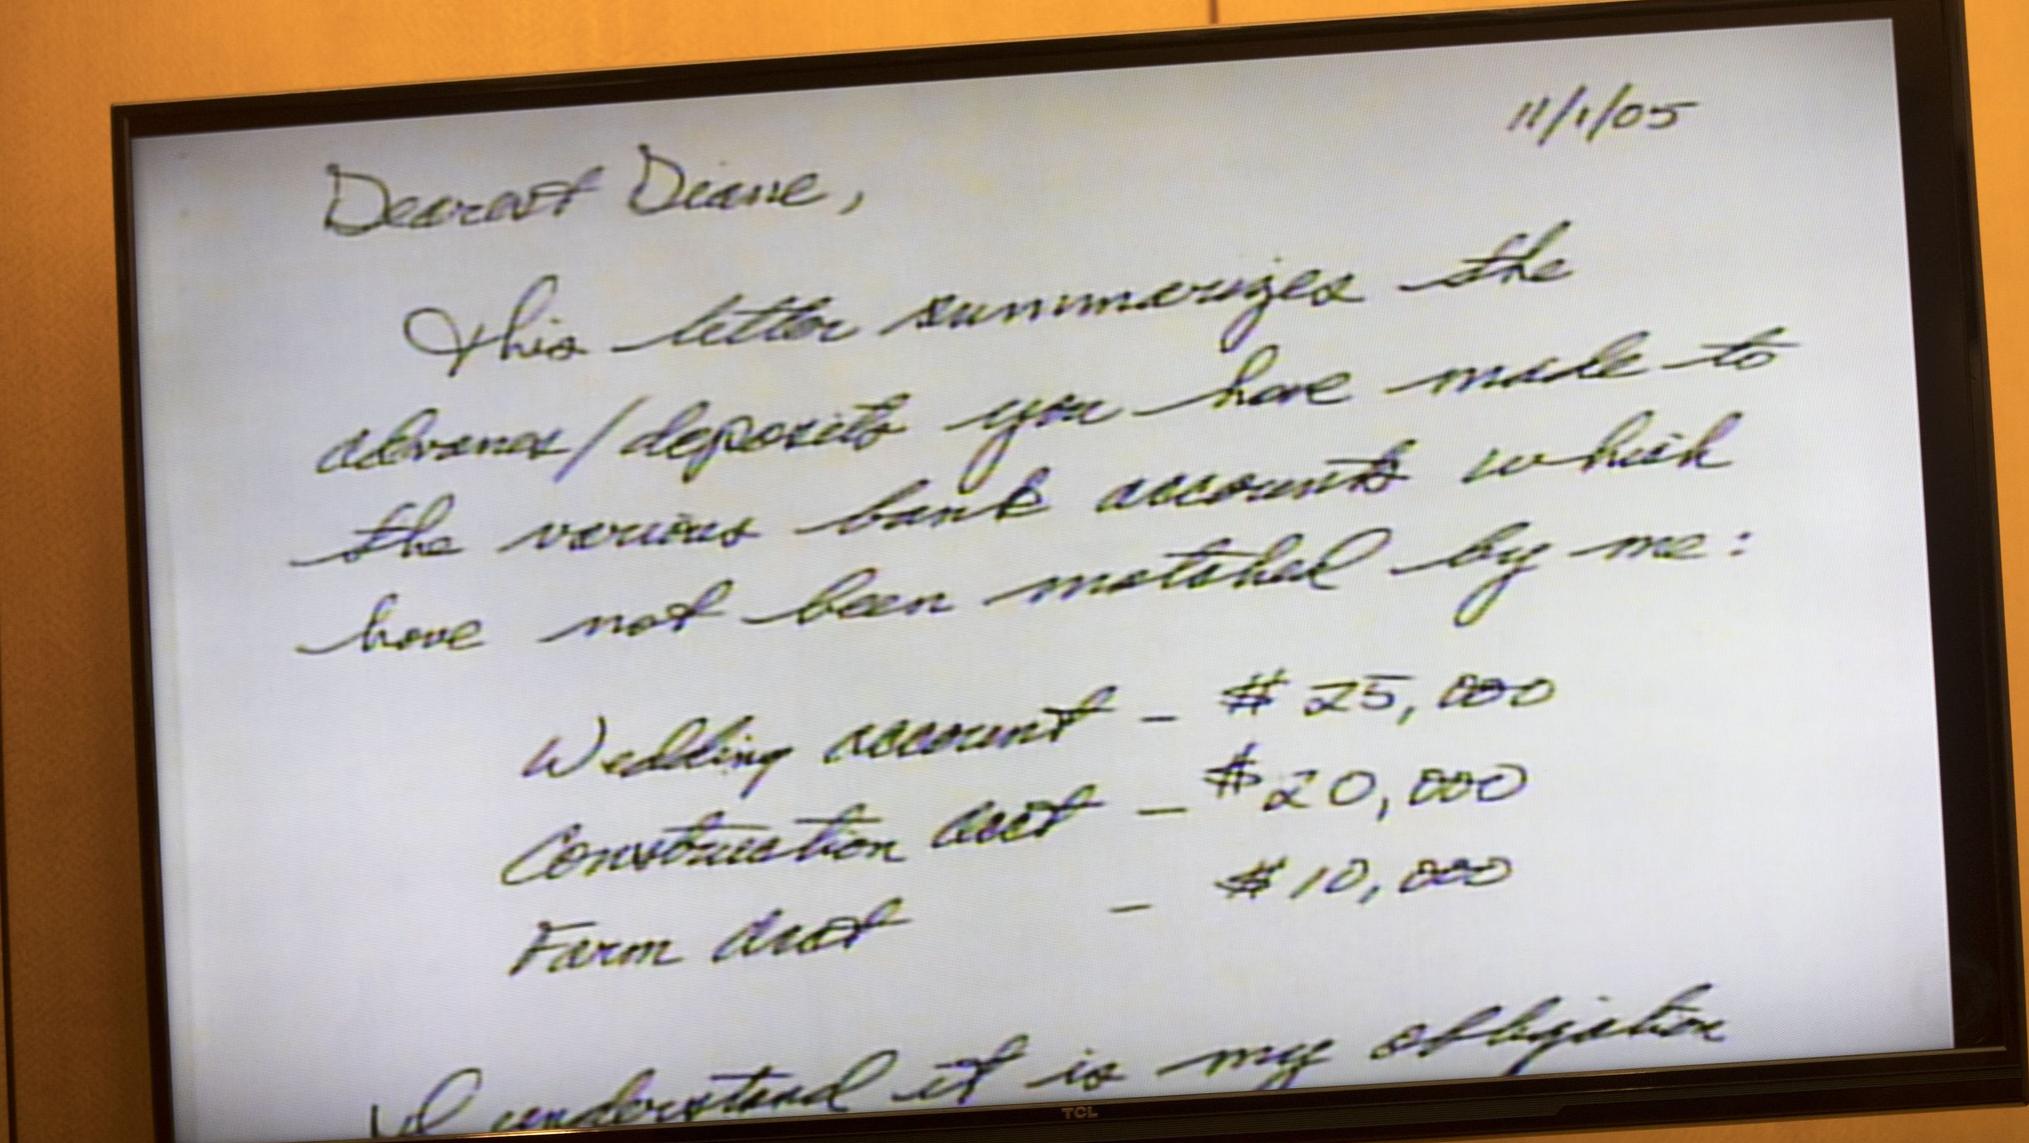 11/1/05
Dearest Diane,
This letter summarizes the
advances/deposits you have made to
the various bank accounts which
have not been matched by me:
Wedding account - $25,000
Construction acct - $20,000
Farm acct - $10,000
I understand it is my obligation
TCL